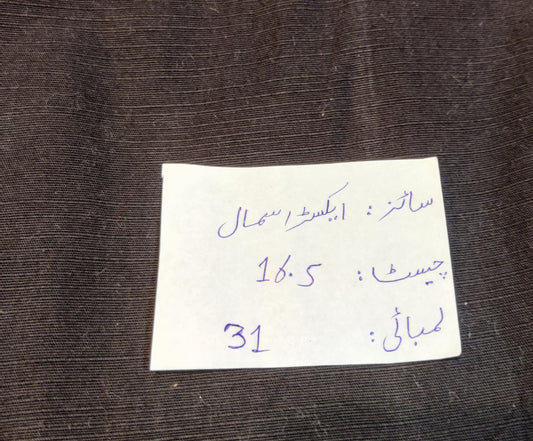 سائز: ایکسٹرا سمال
چیسٹ: 16.5
لمبائی: 31